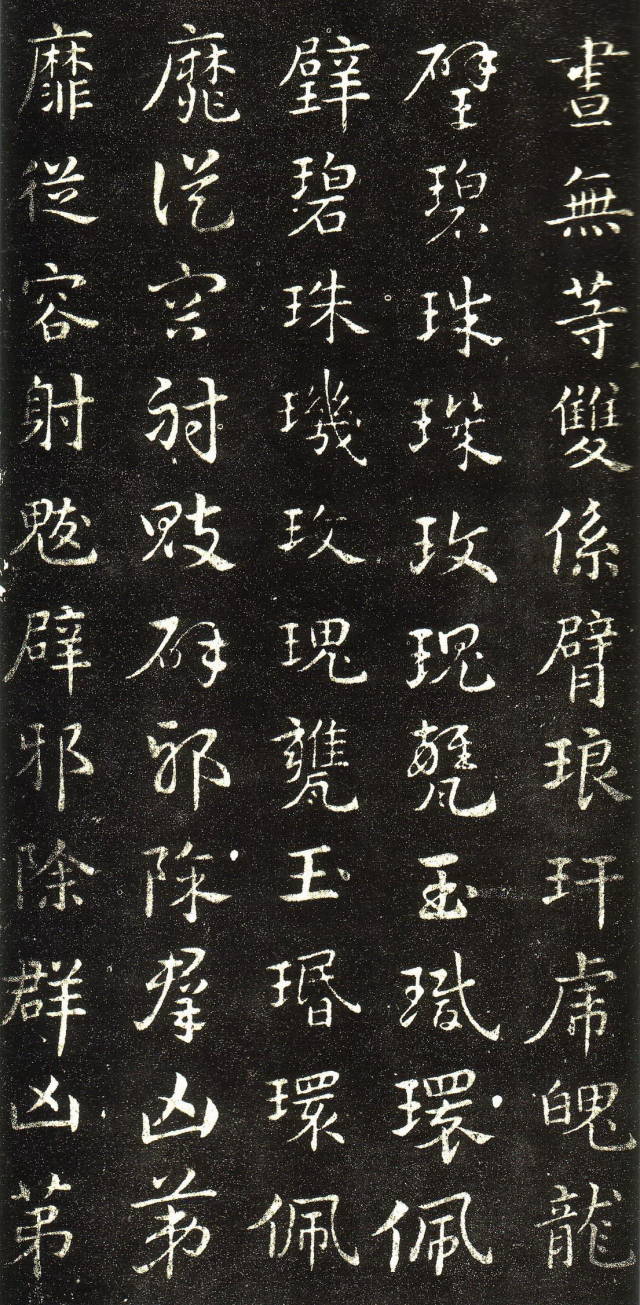 畫無等雙係臂琅玕虎魄龍
璧碧珠璣玫瑰甕玉瑉環佩
璧碧珠璣玫瑰甕玉瑉環佩
靡從容射鬾辟邪除群凶第
靡從容射鬾辟邪除群凶第